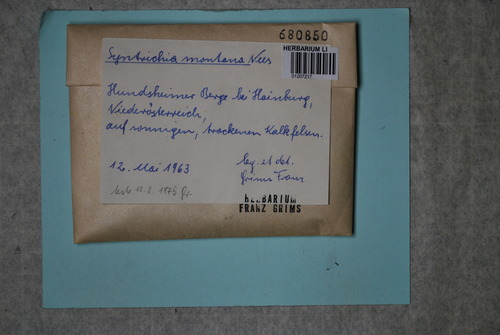 680850
HERBARIUM LI
01207217
Syntrichia montana Nees
Hundsheimer Berge bei Hainburg,
Niederösterreich,
auf sonnigen, trockenen Kalkfelsen.
12. Mai 1963
leg. et det.
Grims Franz
11. 2. 1975 Gr.
HERBARIUM
FRANZ GRIMS